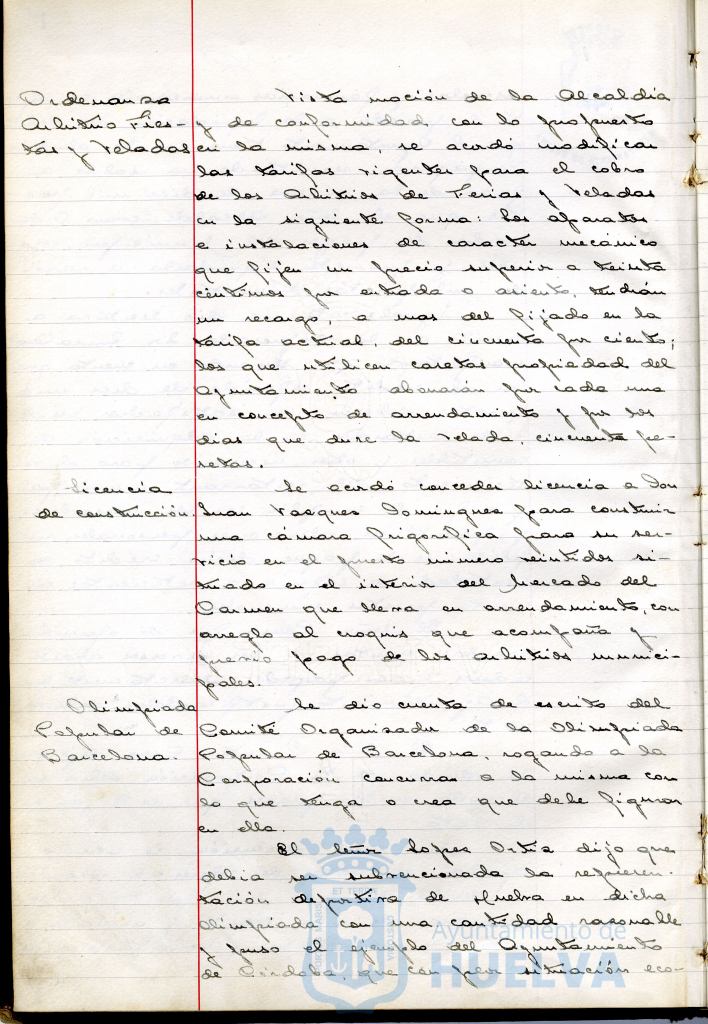 Ordenanza
Arbitrio Fies-
tas y Veladas
Vista moción de la Alcaldia
y de conformidad con lo propuesto
en la misma, se acordó modificar
las tarifas vigentes para el cobro
de los Arbitrios de Ferias y Veladas
en la siguiente forma: Los aparatos
e instalaciones de caracter mecánico
que fijen un precio superior a treinta
céntimos por entrada o asiento, tendrán
un recargo, a mas del fijado en la
tarifa actual, del cincuenta por ciento;
los que utilicen casetas propiedad del
Ayuntamiento abonarán por cada una
en concepto de arrendamiento y por los
dias que dure la Velada, cincuenta pe-
setas.
Licencia
de construcción.
Se acordó conceder licencia a Don
Juan Vasques Domingues para construir
una cámara frigorífica para su ser-
vicio en el puesto número veintidos si-
tuado en el interior del Mercado del
Carmen que lleva en arrendamiento, con
arreglo al croquis que acompaña y
previo pago de los arbitrios munici-
pales.
Olimpiada
Popular de
Barcelona.
Se dio cuenta de escrito del
Comité Organizador de la Olimpiada
Popular de Barcelona, rogando a la
Corporación concurra a la misma con
lo que tenga o crea que debe figurar
en ella.
El señor Lopez Ortiz dijo que
debia ser subvencionada la represen-
tación deportiva de Huelva en dicha
Olimpiada con una cantidad razonable
y puso el ejemplo del Ayuntamiento
de Córdoba, que con peor situación eco-
Ayuntamiento de
HUELVA